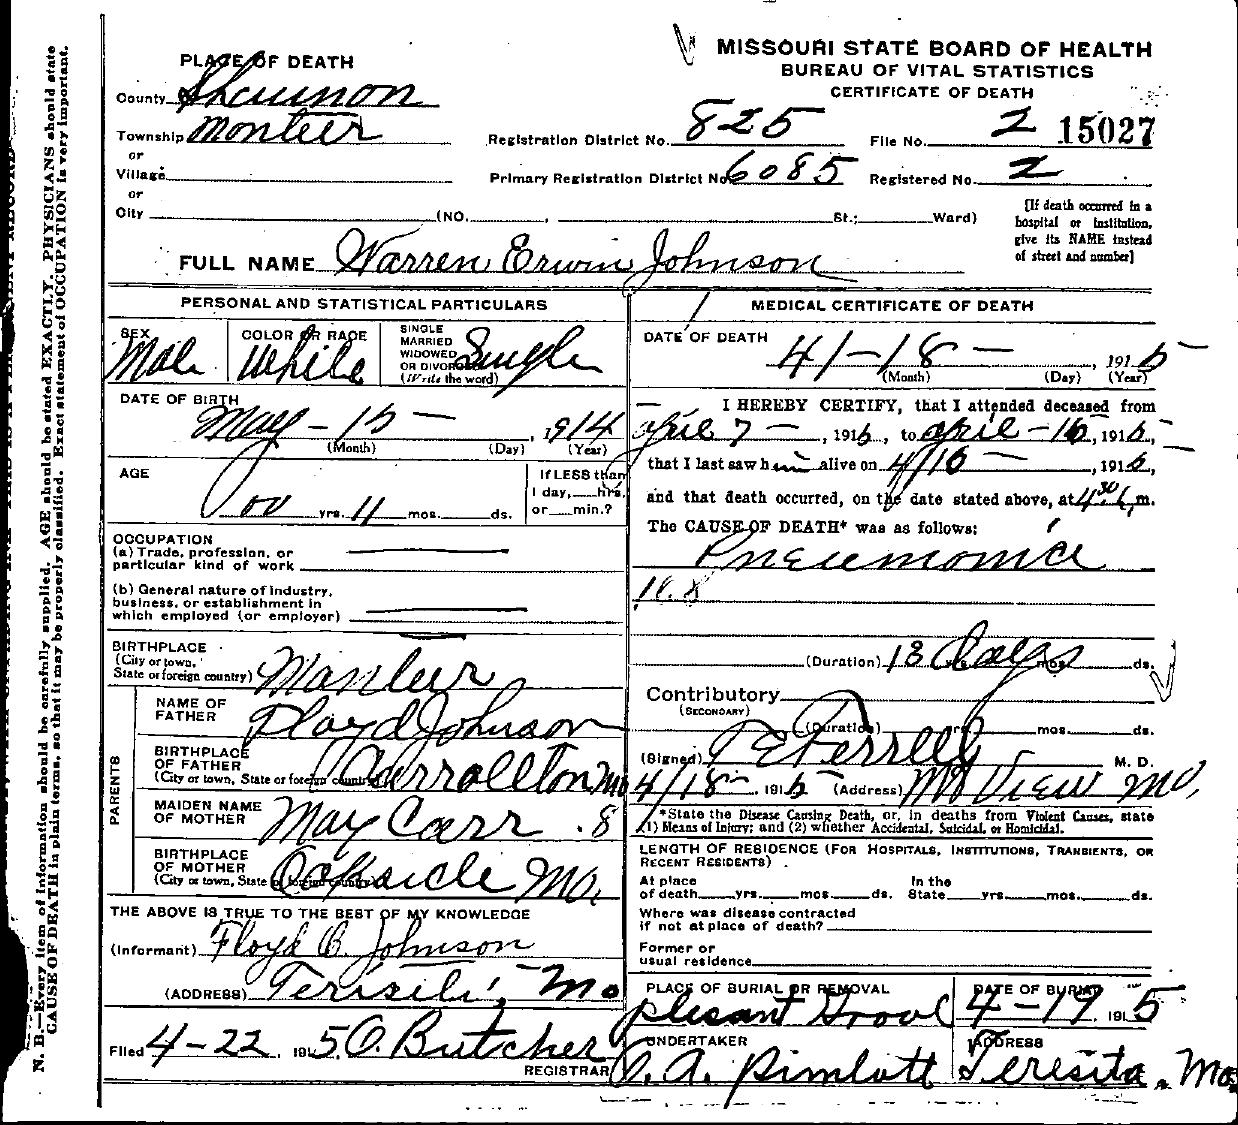 MISSOURI STATE BOARD OF HEALTH
BUREAU OF VITAL STATISTICS
CERTIFICATE OF DEATH
PLACE OF DEATH
County Shannon
Township Montier
or
Village
or
City (NO. , St.; Ward)
Registration District No. 825 File No. 2 15027
Primary Registration District No. 6085 Registered No. 2
[If death occurred in a
hospital or institution,
give its NAME instead
of street and number]
FULL NAME Warren Erwin Johnson
PERSONAL AND STATISTICAL PARTICULARS
SEX Male
COLOR OR RACE White
SINGLE
MARRIED
WIDOWED
OR DIVORCED
(Write the word) Single
DATE OF BIRTH
May - 15 - , 1914
(Month) (Day) (Year)
AGE
00 yrs. 11 mos. ds.
If LESS than
1 day, hrs.
or min.?
OCCUPATION
(a) Trade, profession, or
particular kind of work
(b) General nature of industry,
business, or establishment in
which employed (or employer)
BIRTHPLACE
(City or town,
State or foreign country) Montier
PARENTS
NAME OF
FATHER Floyd Johnson
BIRTHPLACE
OF FATHER
(City or town, State or foreign country) Carrollton Mo
MAIDEN NAME
OF MOTHER May Carr . 8
BIRTHPLACE
OF MOTHER
(City or town, State or foreign country) Mo.
THE ABOVE IS TRUE TO THE BEST OF MY KNOWLEDGE
(Informant) Floyd C. Johnson
(ADDRESS) Mo
Filed 4-22, 1915 O. Butcher
REGISTRAR
MEDICAL CERTIFICATE OF DEATH
DATE OF DEATH
4/-18- , 1915
(Month) (Day) (Year)
I HEREBY CERTIFY, that I attended deceased from
april 7 - , 1915, to april - 16, 1915,
that I last saw him alive on 4/16 - , 1915,
and that death occurred, on the date stated above, at 4 30 m.
The CAUSE OF DEATH* was as follows:
Pneumonia
(Duration) 13 Days mos. ds.
Contributory
(SECONDARY)
(Duration) mos. ds.
(Signed) Ferrell M. D.
4/18 - , 1915 (Address) Mt View Mo,
*State the Disease Causing Death, or, in deaths from Violent Causes, state
(1) Means of Injury; and (2) whether Accidental, Suicidal, or Homicidal.
LENGTH OF RESIDENCE (FOR HOSPITALS, INSTITUTIONS, TRANSIENTS, OR
RECENT RESIDENTS) .
At place
of death yrs. mos. ds.
In the
State yrs. mos. ds.
Where was disease contracted
if not at place of death?
Former or
usual residence
PLACE OF BURIAL OR REMOVAL
plesant Grove
DATE OF BURIAL
4-19, 1915
UNDERTAKER
A. Pimlott
ADDRESS
Teresita, Mo.
N. B.—Every item of information should be carefully supplied. AGE should be stated EXACTLY. PHYSICIANS should state
CAUSE OF DEATH in plain terms, so that it may be properly classified. Exact statement of OCCUPATION is very important.